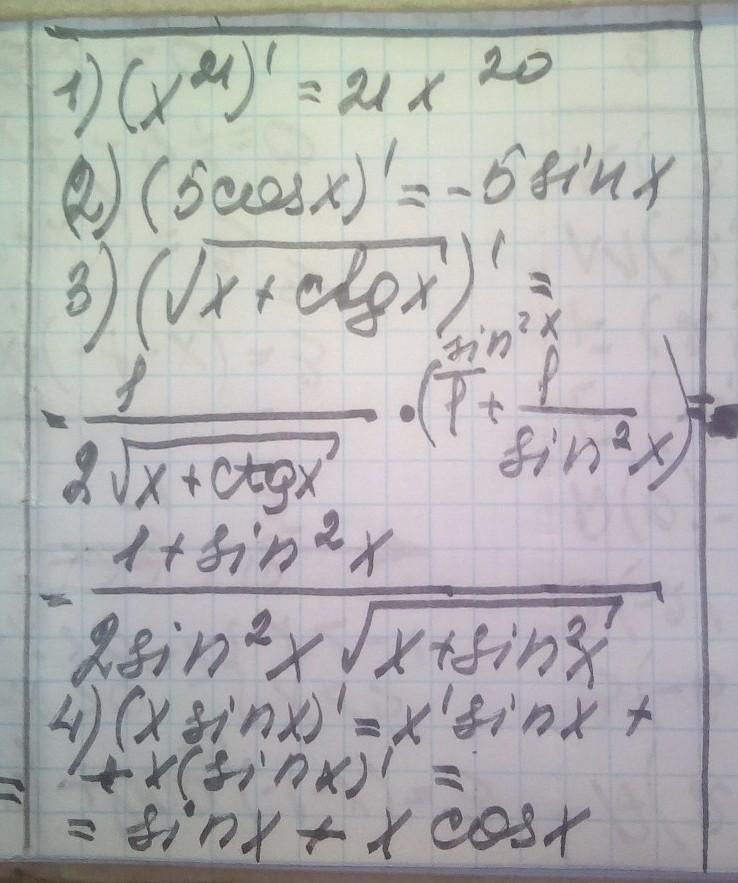 1) (x²¹)' = 21 x²⁰
2) (5cosx)' = -5 sinx
3) (√(x + ctgx))' =
= 1/(2√(x + ctgx)) · (1 + 1/sin²x) =
sin²x
= (1 + sin²x)/(2sin²x √(x + sin²x))
4) (x sinx)' = x' sinx +
+ x(sinx)' =
= sinx + x cosx